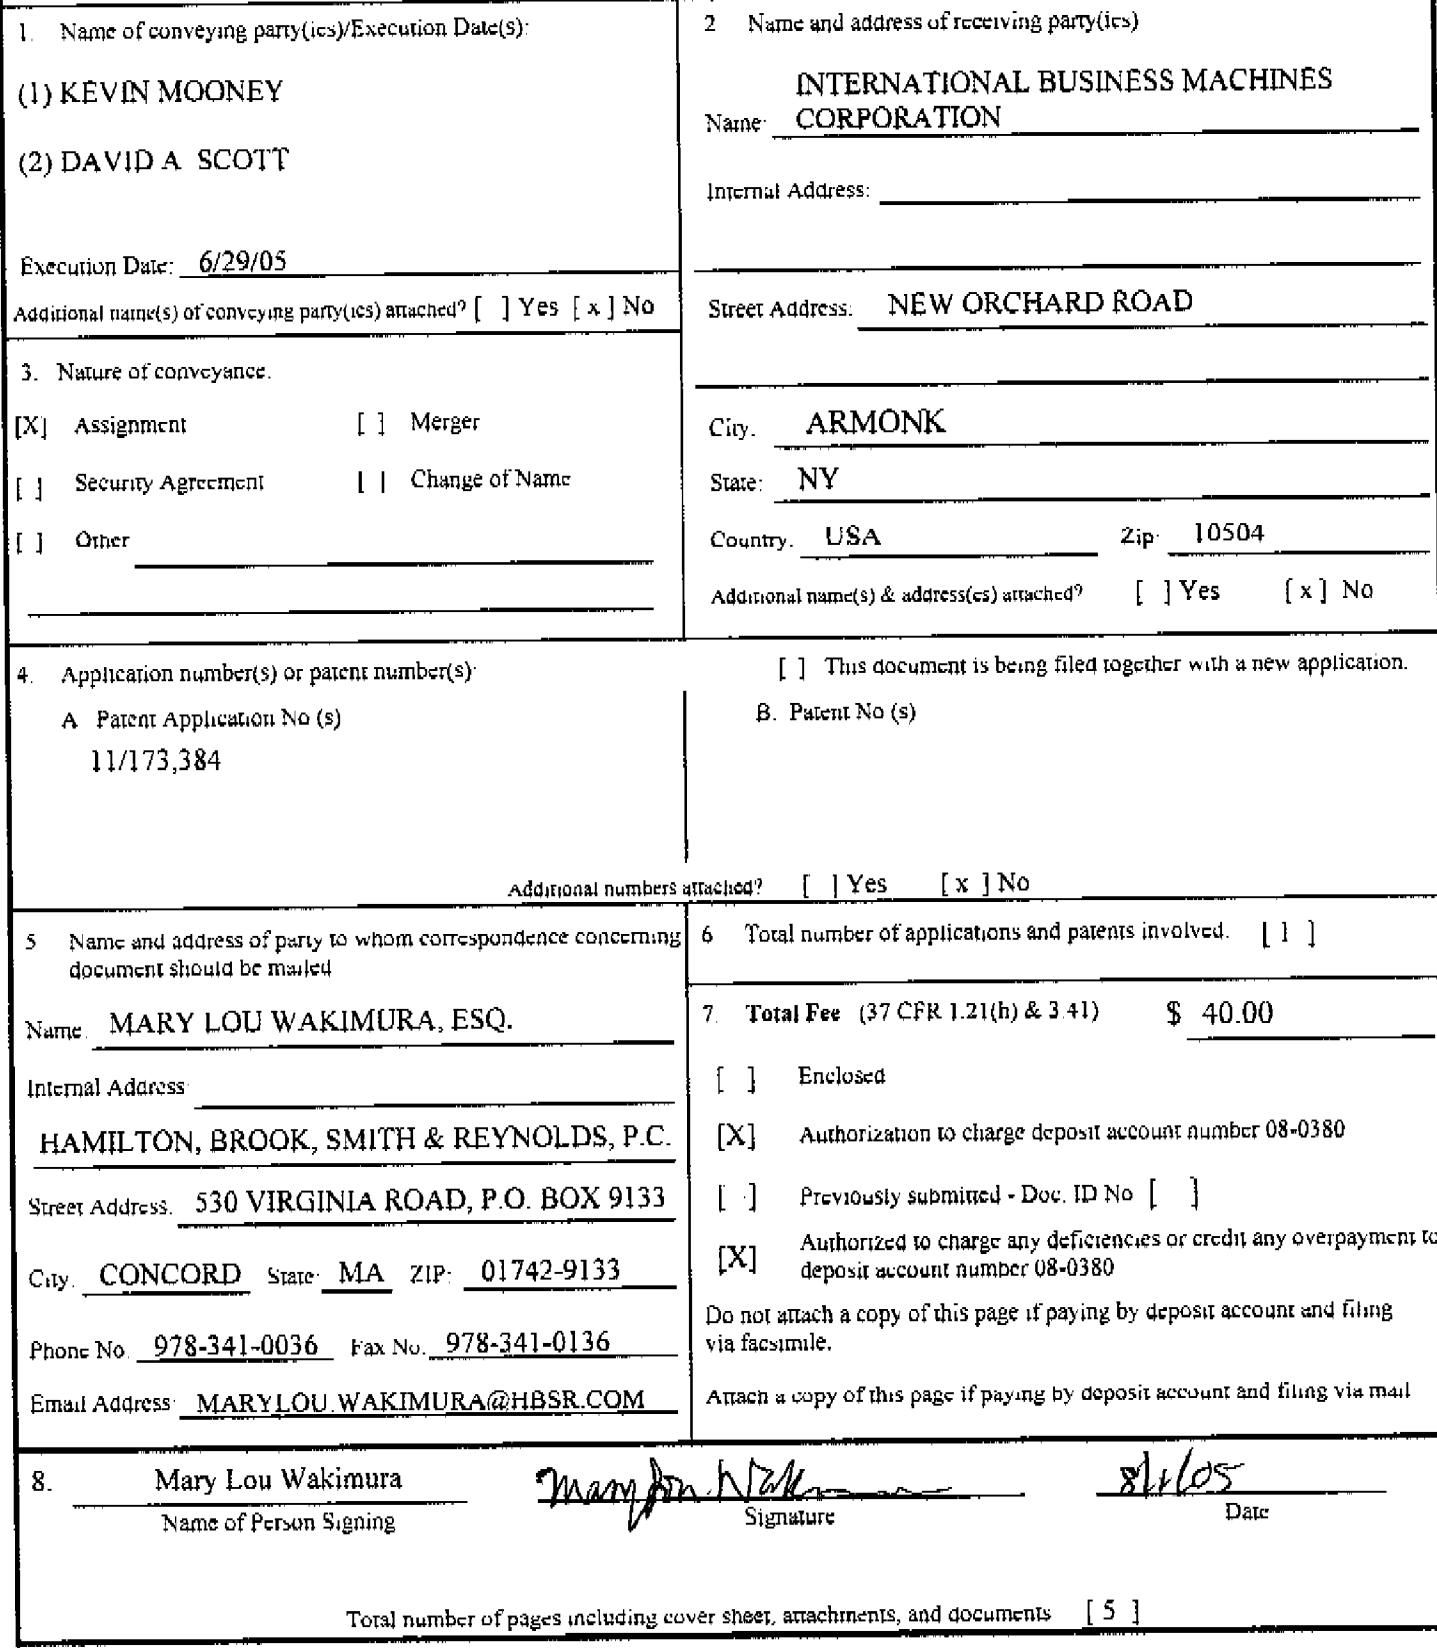 1. Name of conveying party(ies)/Execution Date(s):
(1) KEVIN MOONEY
(2) DAVID A SCOTT
Execution Date: 6/29/05
Additional name(s) of conveying party(ies) attached? [ ] Yes [ x ] No
2 Name and address of receiving party(ies)
INTERNATIONAL BUSINESS MACHINES
Name: CORPORATION
Internal Address:
Street Address: NEW ORCHARD ROAD
City. ARMONK
State: NY
Country. USA Zip: 10504
Additional name(s) & address(es) attached? [ ] Yes [ x ] No
3. Nature of conveyance.
[X] Assignment [ ] Merger
[ ] Security Agreement [ ] Change of Name
[ ] Other
4. Application number(s) or patent number(s):
[ ] This document is being filed together with a new application.
A Patent Application No (s)
11/173,384
B. Patent No (s)
Additional numbers attached? [ ] Yes [ x ] No
5 Name and address of party to whom correspondence concerning
document should be mailed
Name. MARY LOU WAKIMURA, ESQ.
Internal Address
HAMILTON, BROOK, SMITH & REYNOLDS, P.C.
Street Address. 530 VIRGINIA ROAD, P.O. BOX 9133
City. CONCORD State: MA ZIP: 01742-9133
Phone No. 978-341-0036 Fax No. 978-341-0136
Email Address: MARYLOU.WAKIMURA@HBSR.COM
6 Total number of applications and patents involved. [ 1 ]
7. Total Fee (37 CFR 1.21(h) & 3.41) $ 40.00
[ ] Enclosed
[X] Authorization to charge deposit account number 08-0380
[ ] Previously submitted - Doc. ID No [ ]
[X] Authorized to charge any deficiencies or credit any overpayment to
deposit account number 08-0380
Do not attach a copy of this page if paying by deposit account and filing
via facsimile.
Attach a copy of this page if paying by deposit account and filing via mail
8. Mary Lou Wakimura Mary Lou Wakimura 8/1/05
Name of Person Signing Signature Date
Total number of pages including cover sheet, attachments, and documents [ 5 ]